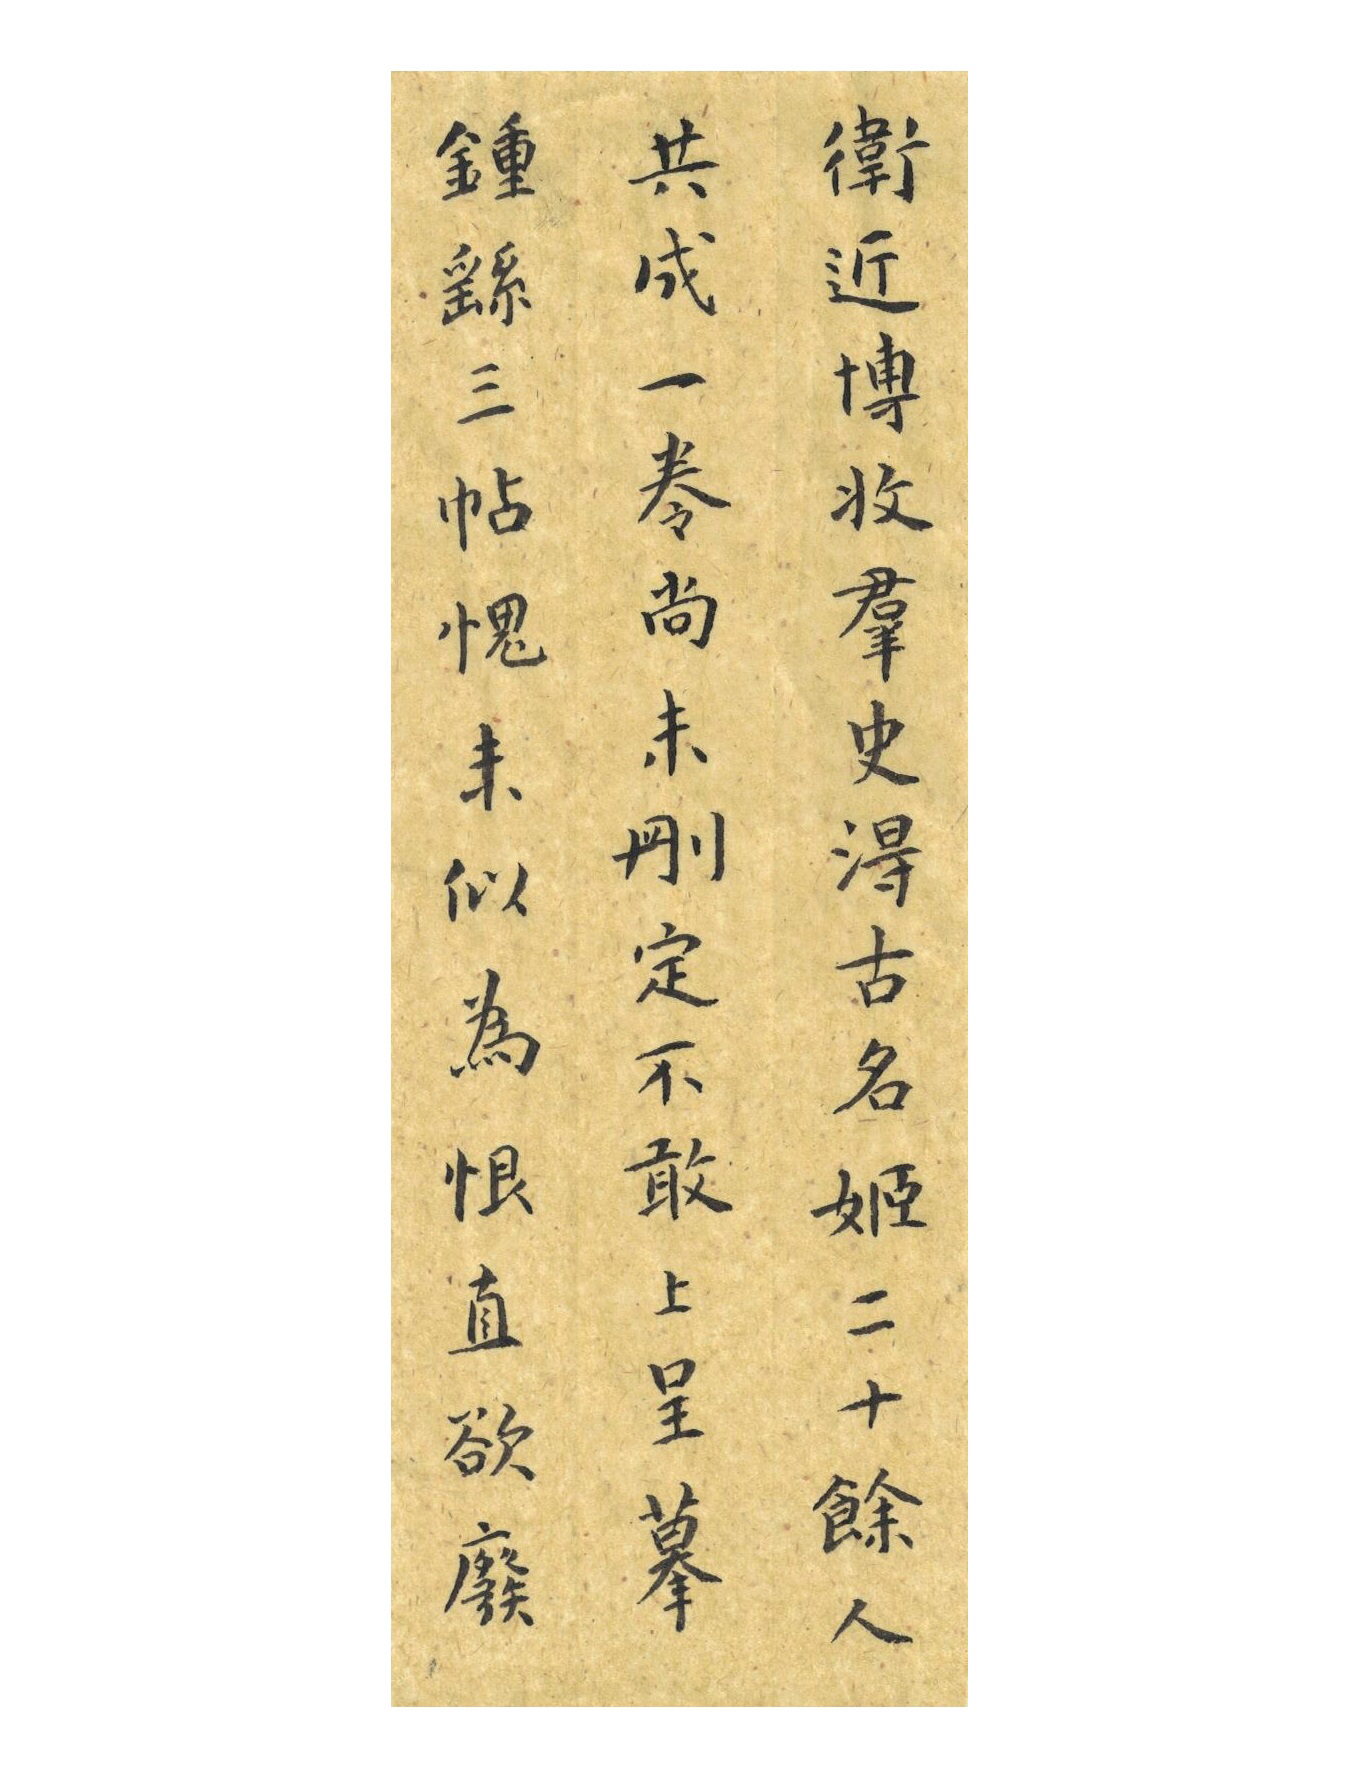 衛近博收羣史得古名姬二十餘人
共成一卷尚未刪定不敢上呈摹
鍾繇三帖愧未似為恨直欲廢